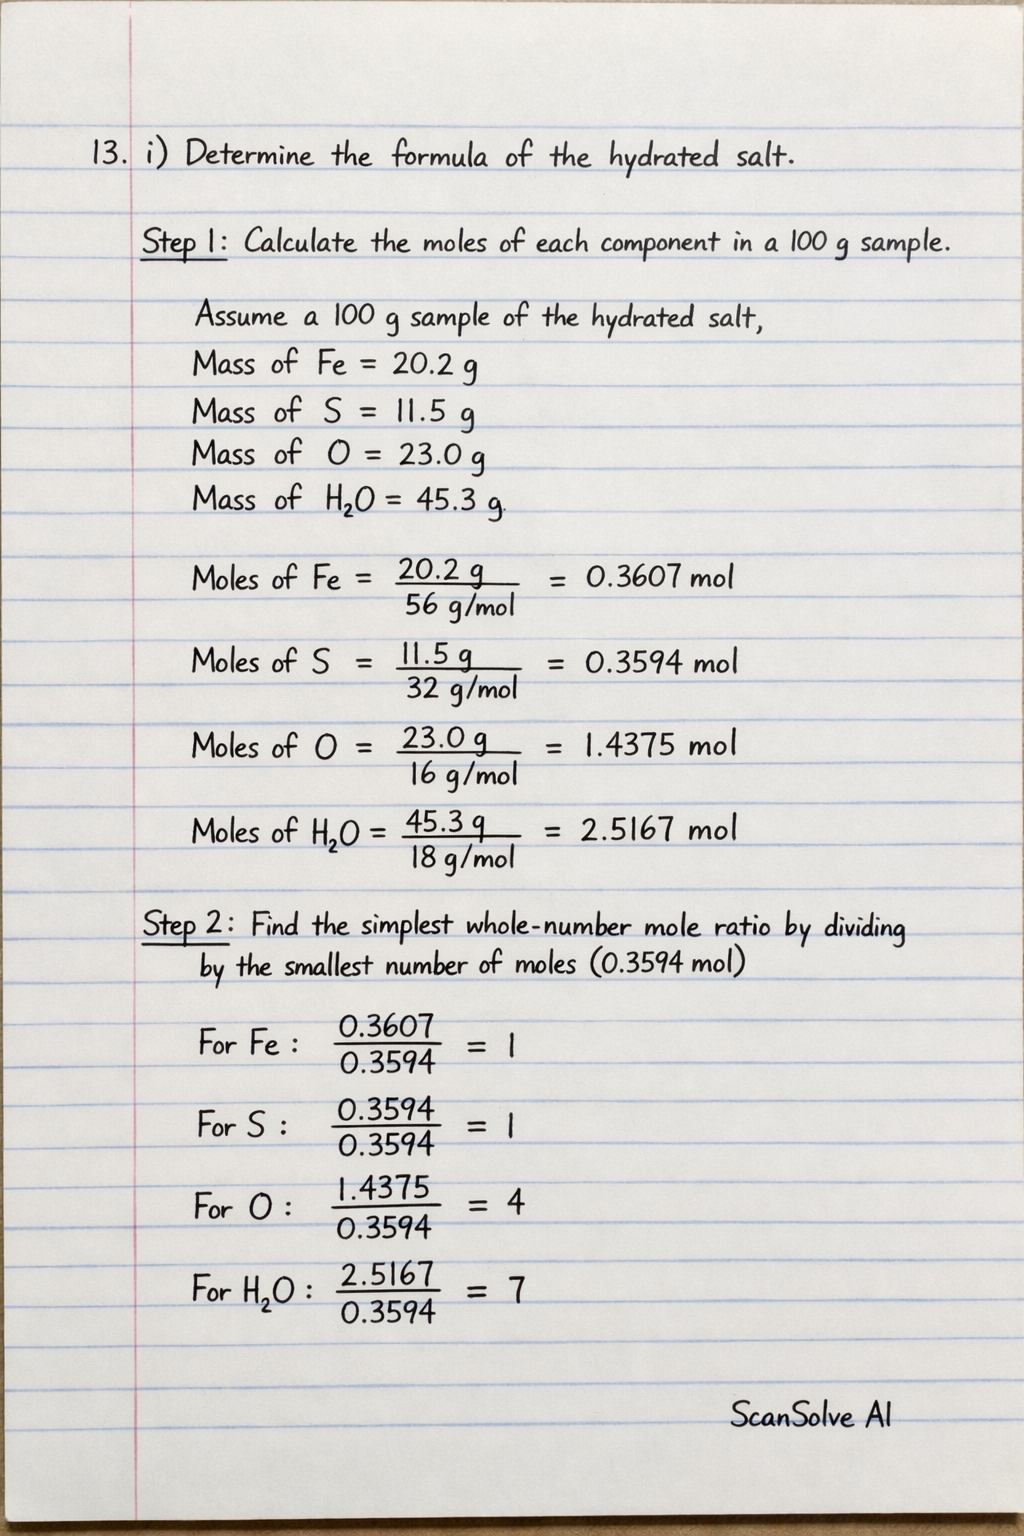 13. i) Determine the formula of the hydrated salt.
Step 1: Calculate the moles of each component in a 100 g sample.
Assume a 100 g sample of the hydrated salt,
Mass of Fe = 20.2 g
Mass of S = 11.5 g
Mass of O = 23.0 g
Mass of H₂O = 45.3 g.
Moles of Fe = 20.2 g / 56 g/mol = 0.3607 mol
Moles of S = 11.5 g / 32 g/mol = 0.3594 mol
Moles of O = 23.0 g / 16 g/mol = 1.4375 mol
Moles of H₂O = 45.3 g / 18 g/mol = 2.5167 mol
Step 2: Find the simplest whole-number mole ratio by dividing
by the smallest number of moles (0.3594 mol)
For Fe : 0.3607 / 0.3594 = 1
For S : 0.3594 / 0.3594 = 1
For O : 1.4375 / 0.3594 = 4
For H₂O : 2.5167 / 0.3594 = 7
ScanSolve AI